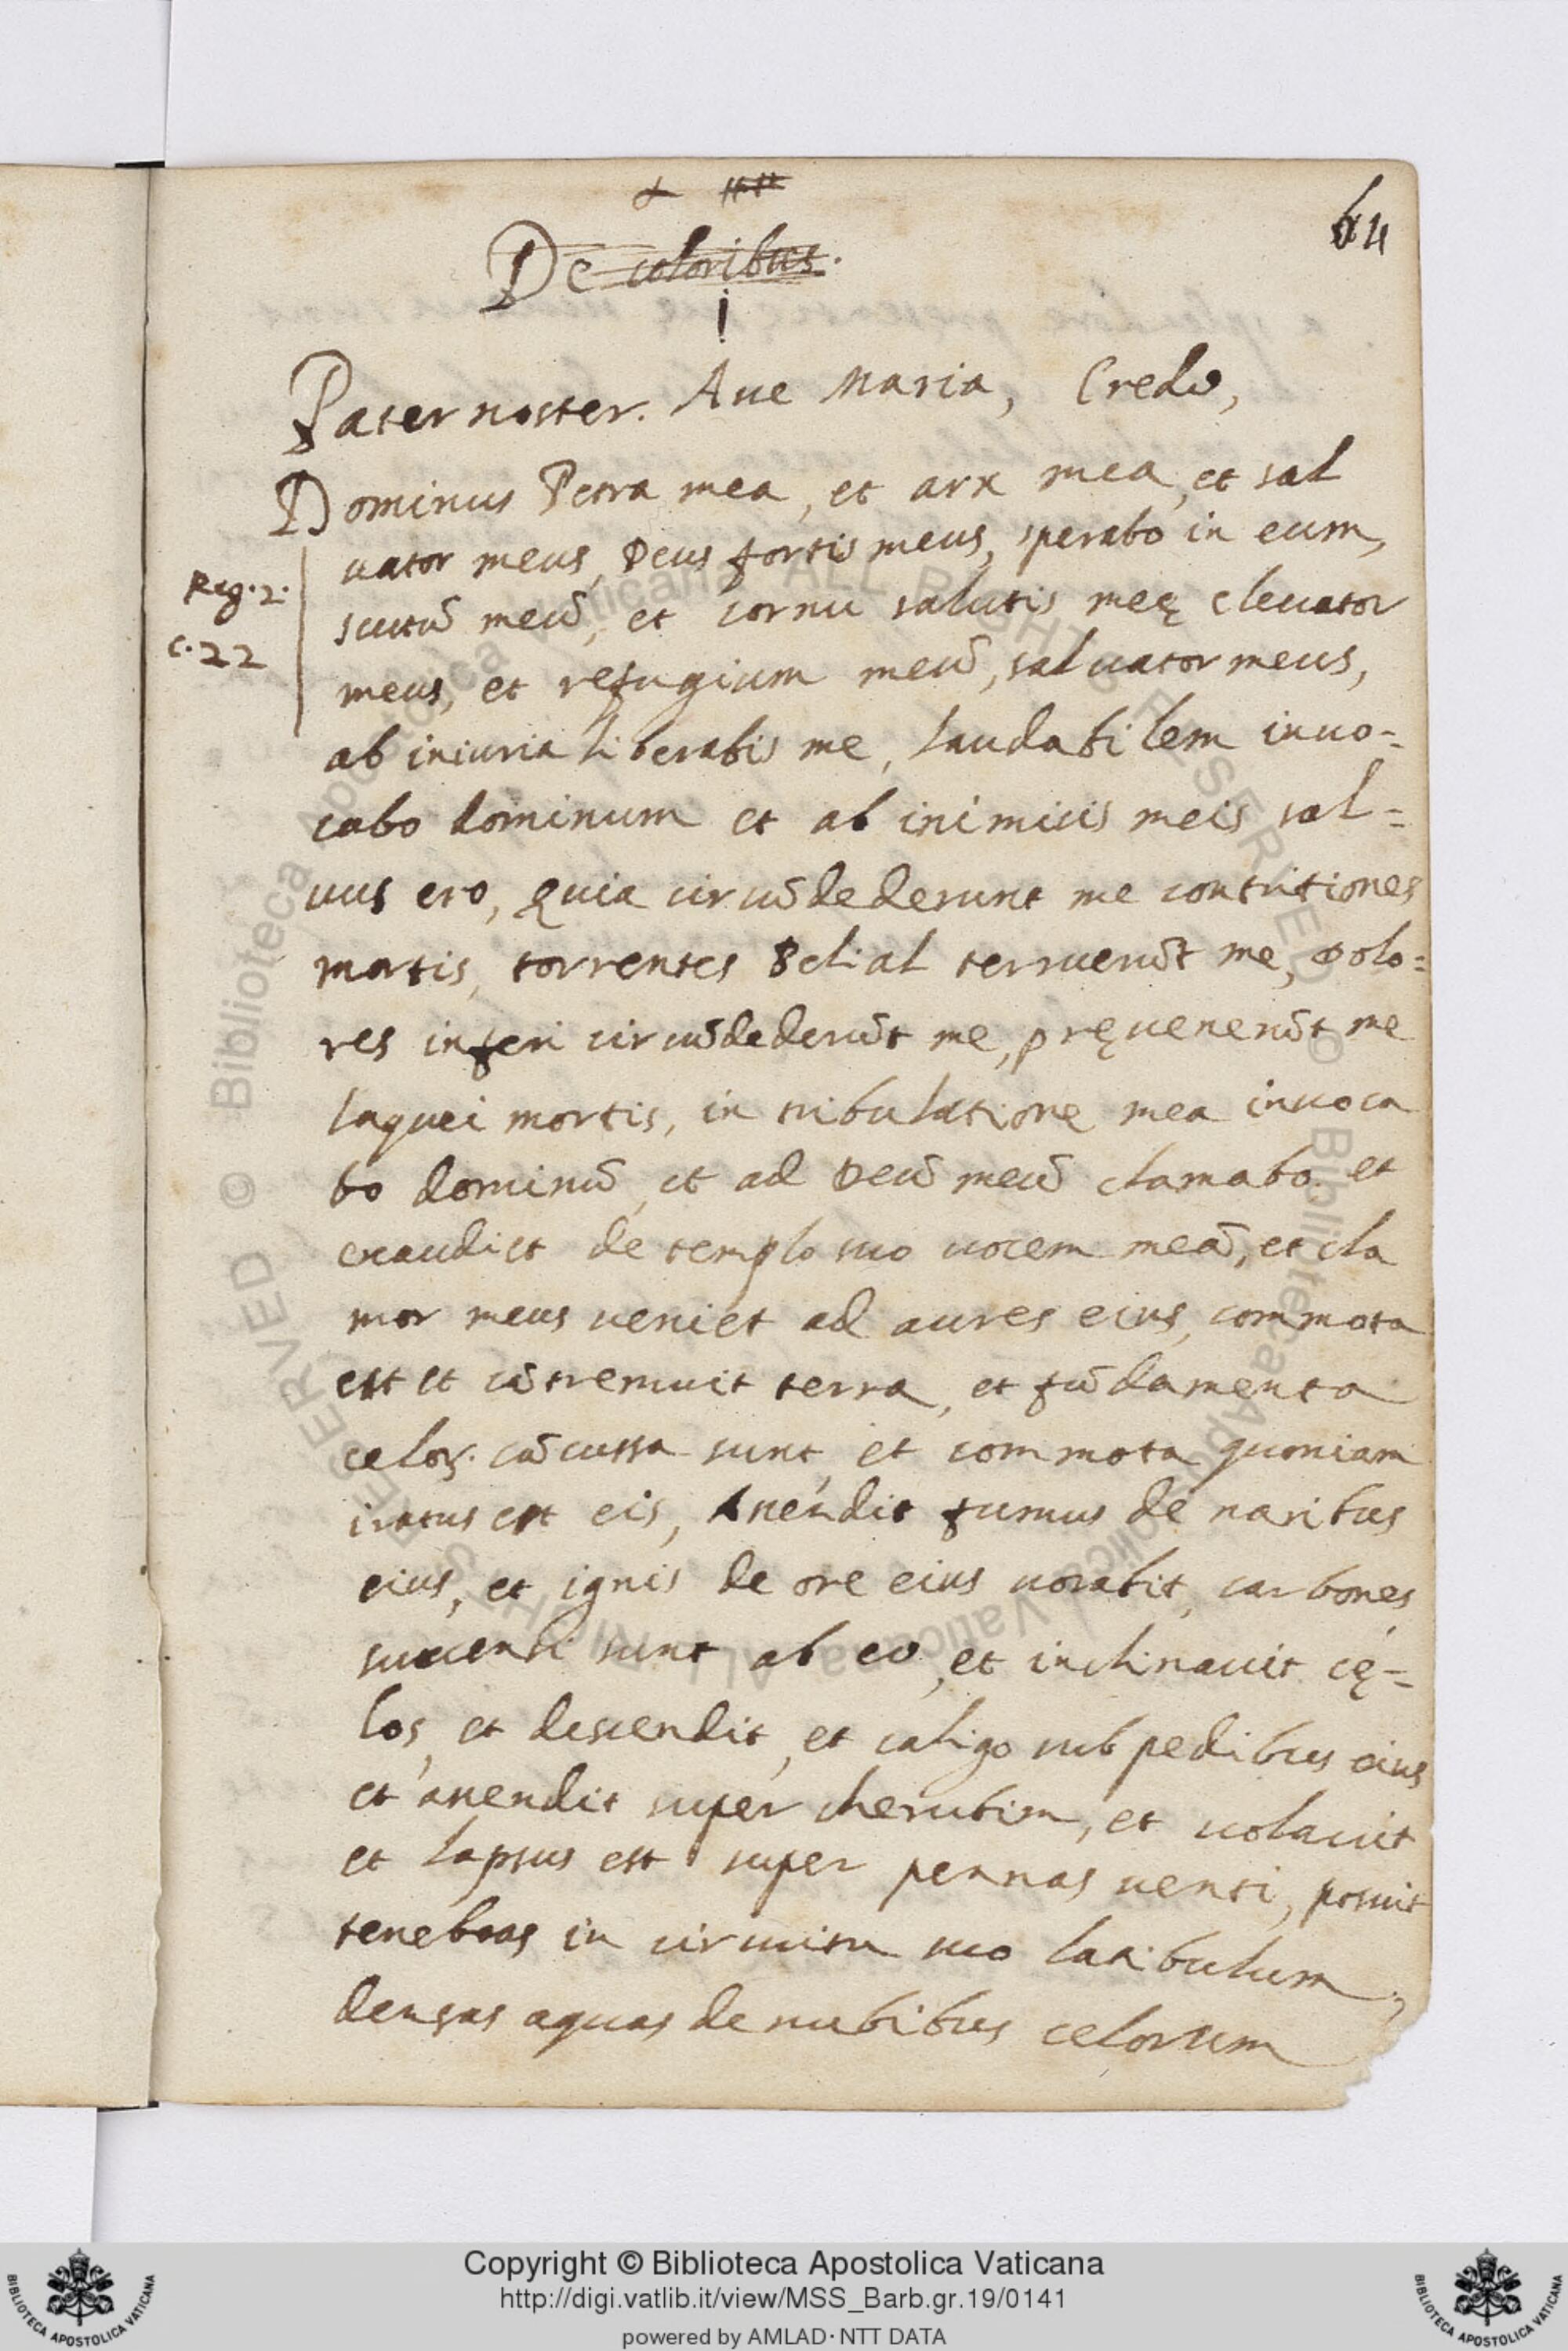 64
De coloribus.
i
Pater noster. Aue Maria, Credo,
Dominus Petra mea, et arx mea, et sal
uator meus, Deus fortis meus, sperabo in eum,
Reg. 2.
c. 22
scutū meū, et cornu salutis meę eleuator
meus, et refugium meū, saluator meus,
ab iniuria liberabis me, laudabilem inuo=
cabo dominum et ab inimicis meis sal=
uus ero, quia circūdederunt me contritiones
mortis, torrentes Belial terruerūt me, Dolo=
res inferi circūdederūt me, pręuenerūt me
laquei mortis, in tribulatione mea inuoca
bo dominū, et ad Deū meū clamabo. et
exaudiet de templo suo uocem meā, et cla
mor meus ueniet ad aures eius, commota
est et cōtremuit terra, et fūdamenta
celoꝝ. cōcussa sunt, et commota quoniam
iratus est eis, Ascendit fumus de naribus
eius, et ignis de ore eius uorabit, carbones
succensi sunt ab eo, et inclinauit cę=
los, et descendit, et caligo sub pedibus eius
et ascendit super cherubim, et uolauit
et lapsus est super pennas uenti, posuit
tenebras in circuitu suo latibulum,
densas aquas de nubibus celorum
© Biblioteca Apostolica Vaticana ALL RIGHTS RESERVED © Biblioteca Apostolica Vaticana ALL RIGHTS RESERVED
Copyright © Biblioteca Apostolica Vaticana
http://digi.vatlib.it/view/MSS_Barb.gr.19/0141
powered by AMLAD·NTT DATA
BIBLIOTECA APOSTOLICA VATICANA
BIBLIOTECA APOSTOLICA VATICANA